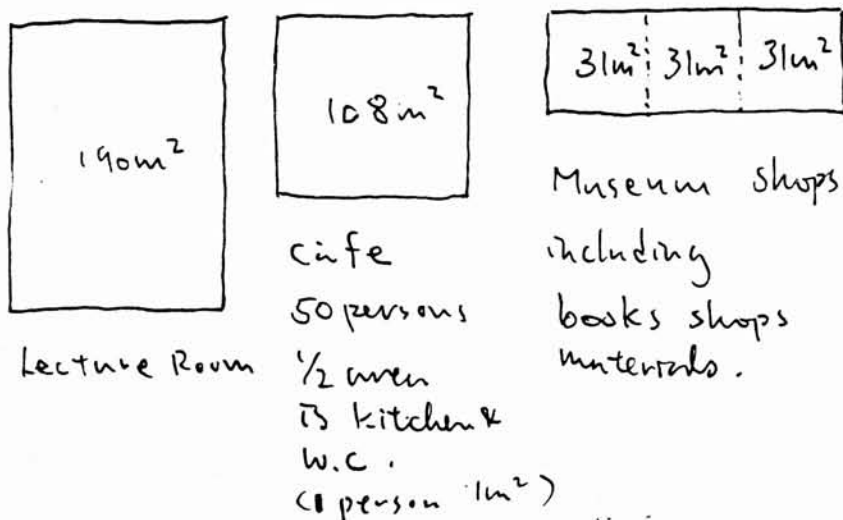 190m²
Lecture Room
108m²
cafe
50 persons
1/2 area
is kitchen &
W.C.
(1 person 1m²)
31m² 31m² 31m²
Museum shops
including
books shops
materials.